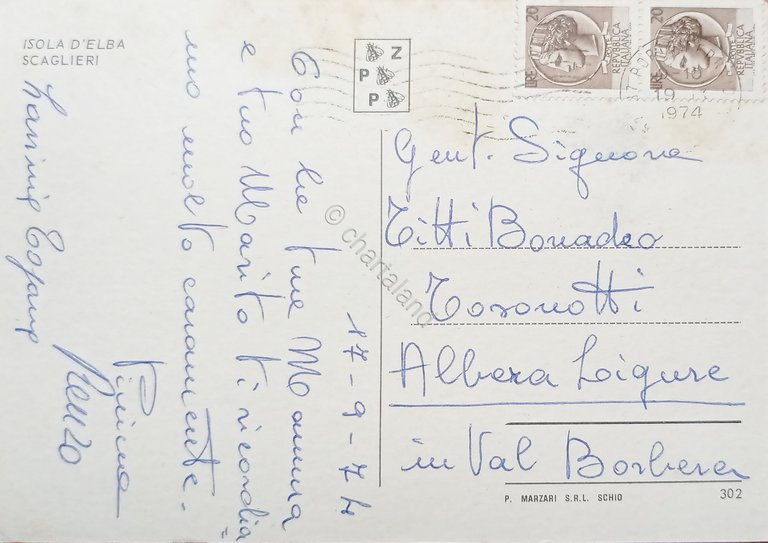 ISOLA D'ELBA
SCAGLIERI
Z
P
P
20
REPUBBLICA
ITALIANA
LIRE
20
REPUBBLICA
ITALIANA
LIRE
1974
17-9-74
Con la tua Mamma
e tuo Marito ti ricordia=
mo molto caramente.
Pinina
Renzo
Gent. Signora
Titti Bonadeo
Toronotti
Albera Ligure
in Val Borbera
P. MARZARI S.R.L. SCHIO
302
© chartaland